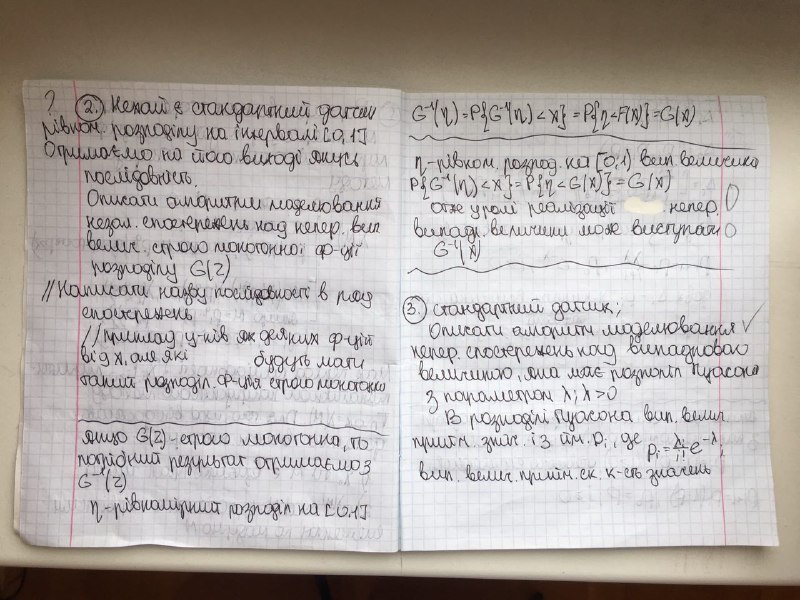 ? 2. Нехай є стандартний датчик
рівном. розподілу на інтервалі [0,1]
Отримаємо на його виході якусь
послідовність.
Описати алгоритм моделювання
незал. спостережень над непер. вип
велич. строго монотонної ф-ції
розподілу G(z)
//Написати назву послідовності в ряд
спостережень
//приклад ц-ків як деяких ф-цій
від x, але які будуть мати
такий розподіл. ф-ція строго монотонна
якщо G(z)-строго монотонна, то
потрібний результат отримаємо з
G⁻¹(z)
η-рівномірний розподіл на [0,1]
G⁻¹(η)=P{G⁻¹(η)<x}=P{η<F(x)}=G(x)
η-рівном. розпод. на [0,1) вип. величина
P{G⁻¹(η)<x}=P{η<G(x)}=G(x)
отже у ролі реалізації непер.
випадк. величини може виступати
G⁻¹(x)
3. стандартний датчик;
Описати алгоритм моделювання
непер. спостережень над випадковою
величиною, яка має розподіл Пуасона
з параметром λ; λ>0
В розподілі Пуасона вип. велич.
прийм. знач. i з йм. pᵢ, де pᵢ=λⁱ/i! e^(-λ);
вип. велич. прийм. ск. к-сть значень